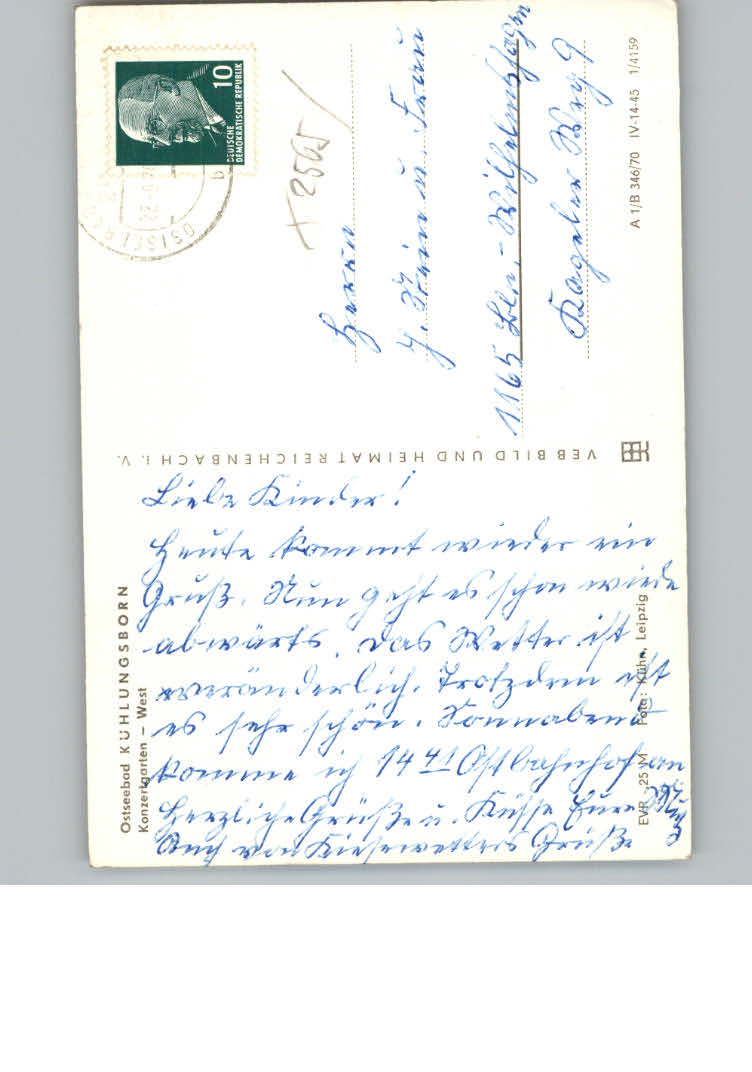 Ostseebad KÜHLUNGSBORN
Konzertgarten – West
Liebe Kinder!
Heute kommt wieder ein
Gruß. Nun geht es schon wieder
abwärts. Das Wetter ist
veränderlich. Trotzdem ist
es sehr schön. Sonnabend
komme ich 14 41 Ostbahnhof an
Herzliche Grüße u. Küsse Eure
Auch von Kiesewetters Grüße
EVP: 25 M Foto: Kühn, Leipzig
VEB BILD UND HEIMAT REICHENBACH i. V.
10
DEUTSCHE
DEMOKRATISCHE REPUBLIK
2565
Herrn
J. Stein u. Frau
1165 Bln.-Wilhelmshagen
Kageler Weg 9
A 1/B 346/70 IV-14-45 1/4159